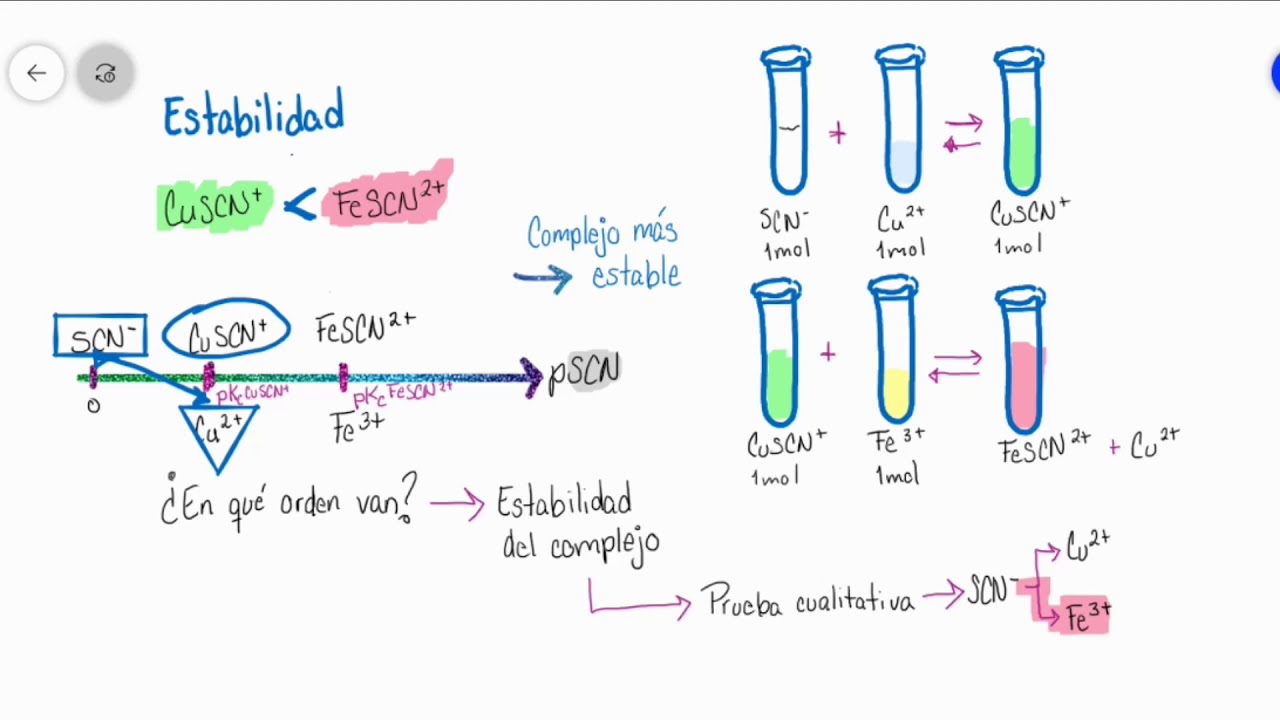 Estabilidad
CuSCN⁺ < FeSCN²⁺
Complejo más
→ estable
SCN⁻ CuSCN⁺ FeSCN²⁺
pSCN
0
pKc CuSCN⁺ pKc FeSCN²⁺
Cu²⁺ Fe³⁺
¿En qué orden van? → Estabilidad
del complejo
Prueba cualitativa → SCN⁻
Cu²⁺
Fe³⁺
+ ⇌
SCN⁻ Cu²⁺ CuSCN⁺
1mol 1mol 1mol
+ ⇌
CuSCN⁺ Fe³⁺ FeSCN²⁺ + Cu²⁺
1mol 1mol